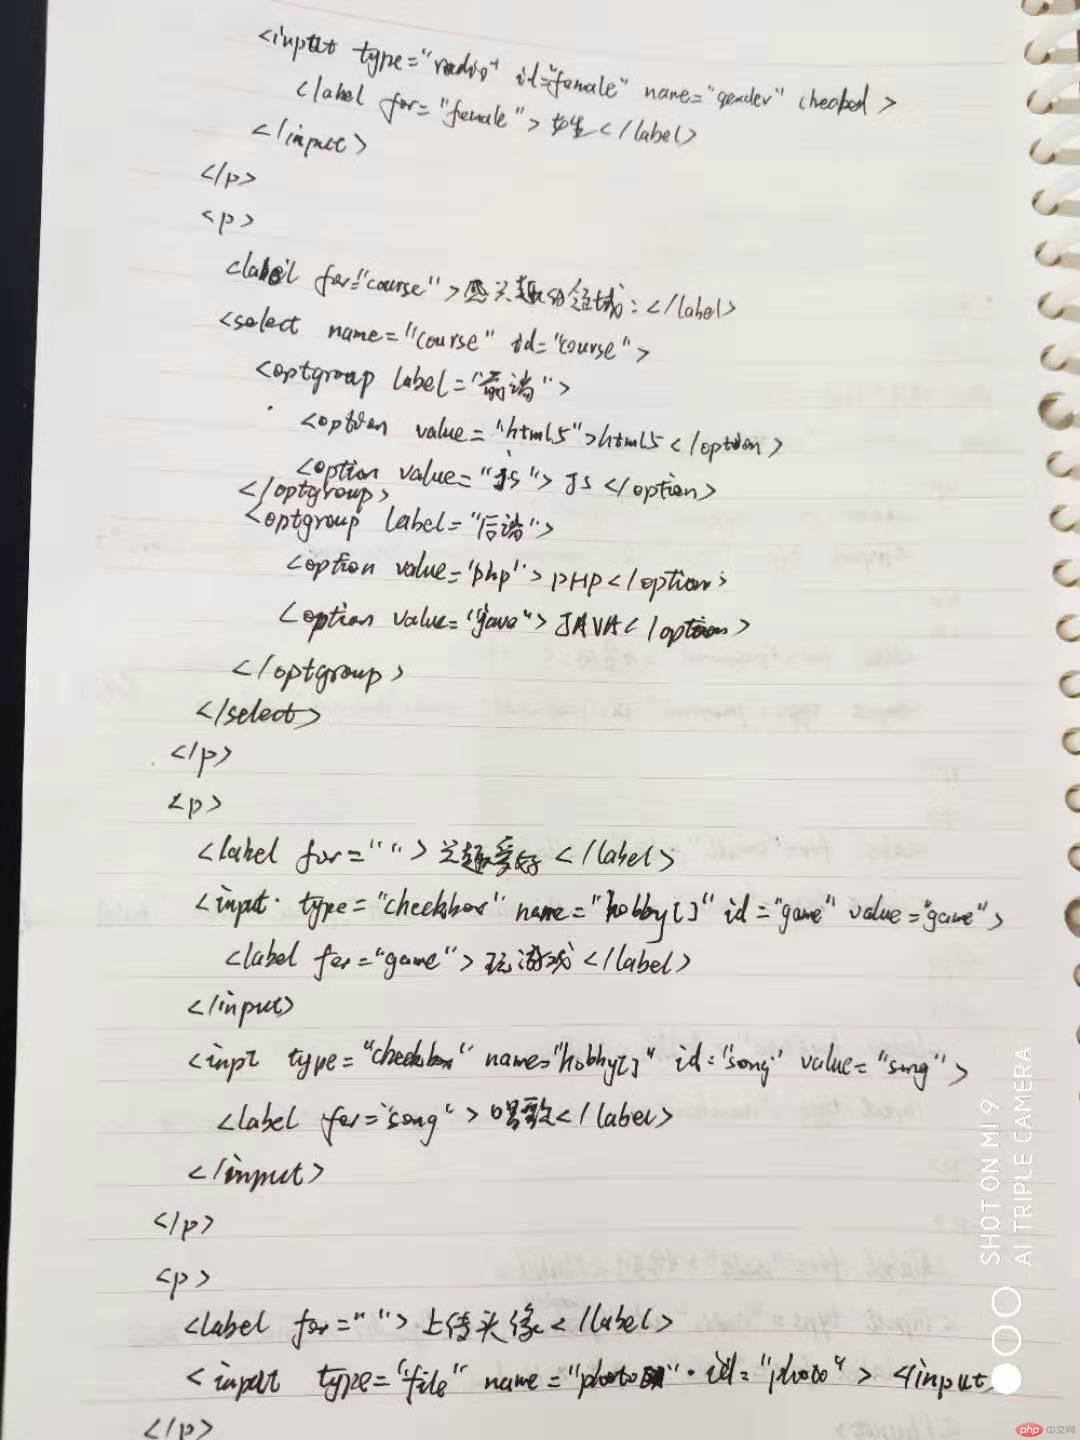 <input type="radio" id="female" name="gender" checked>
<label for="female">女生</label>
</input>
</p>
<p>
<label for="course">感兴趣的领域:</label>
<select name="course" id="course">
<optgroup label="前端">
<option value="html5">html5</option>
<option value="js">JS</option>
</optgroup>
<optgroup label="后端">
<option value="php">PHP</option>
<option value="java">JAVA</option>
</optgroup>
</select>
</p>
<p>
<label for="">兴趣爱好</label>
<input type="checkbox" name="hobby[]" id="game" value="game">
<label for="game">玩游戏</label>
</input>
<inpt type="checkbox" name="hobby[]" id="song" value="song">
<label for="song">唱歌</label>
</input>
</p>
<p>
<label for="">上传头像</label>
<input type="file" name="photo" id="photo"> </input>
</p>
SHOT ON MI 9
AI TRIPLE CAMERA
php 中文网